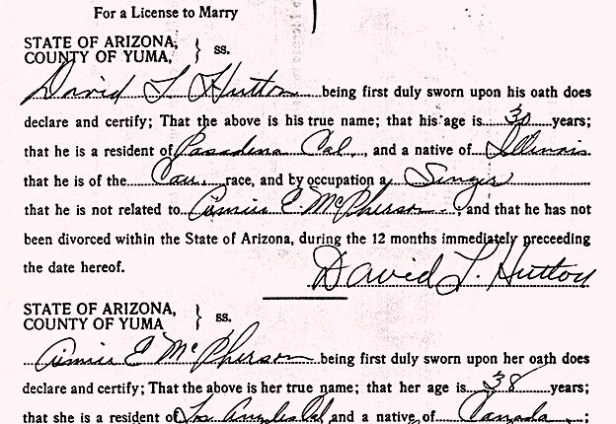 For a License to Marry
STATE OF ARIZONA,
COUNTY OF YUMA, } ss.
David L Hutton being first duly sworn upon his oath does
declare and certify; That the above is his true name; that his age is 30 years;
that he is a resident of Pasadena Cal, and a native of Illinois
that he is of the Cau. race, and by occupation a Singer
that he is not related to Aimie E McPherson, and that he has not
been divorced within the State of Arizona, during the 12 months immediately preceeding
the date hereof.
David L. Hutton
STATE OF ARIZONA,
COUNTY OF YUMA } ss.
Aimie E McPherson being first duly sworn upon her oath does
declare and certify; That the above is her true name; that her age is 38 years;
that she is a resident of Los Angeles Cal and a native of Canada;